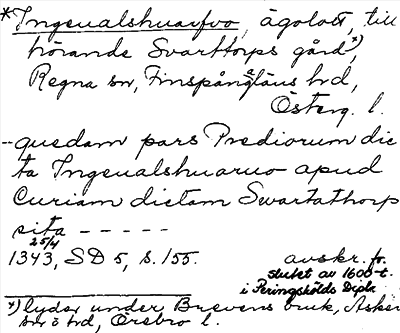 *Ingeualshuarfvo, ägolott, till
hörande Svarttorps gård*),
Regna sn, Finspångaläns hd,
Österg. l.
--quedam pars Prediorum dic
ta Ingeualshuaruo apud
Curiam dictam Swartathorp
sita -----
25/4
1343, SD 5, s. 155. avskr. fr.
slutet av 1600-t.
i Peringskölds Dipl.
*) lyder under Brevens bruk, Asker
sn o hd, Örebro l.